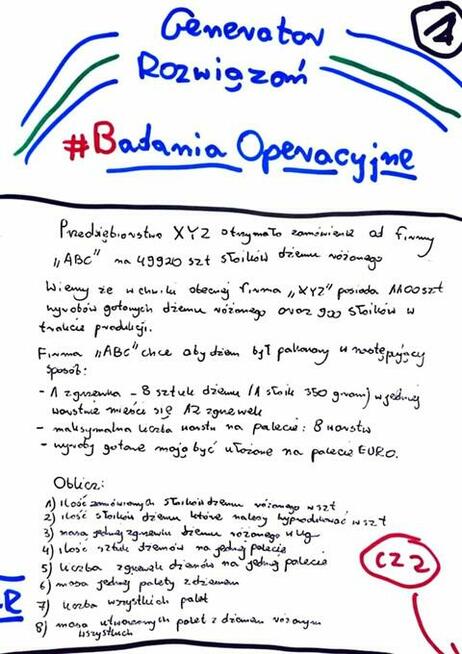 1
Generator
Rozwiązań
#Badania Operacyjne
Przedsiębiorstwo XYZ otrzymało zamówienie od firmy
"ABC" na 49920 szt słoików dżemu różanego
Wiemy że w chwili obecnej firma "XYZ" posiada 1100 szt
wyrobów gotowych dżemu różanego oraz 900 słoików w
trakcie produkcji.
Firma "ABC" chce aby dżem był pakowany w następujący
sposób:
- 1 zgrzewka - 8 sztuk dżemu (1 słoik 350 gram) w jednej
warstwie mieści się 12 zgrzewek
- maksymalna liczba warstw na palecie: 8 warstw
- wyroby gotowe mają być ułożone na palecie EURO.
Oblicz:
1) ilość zamówionych słoików dżemu różanego w szt
2) ilość słoików dżemu które należy wyprodukować w szt
3) masa jednej zgrzewki dżemu różanego w kg
4) ilość sztuk dżemów na jednej palecie
5) liczba zgrzewek dżemów na jednej palecie
6) masa jednej palety z dżemem
7) liczba wszystkich palet
8) masa utworzonych palet z dżemem różanym
wszystkich
CZ 2
R